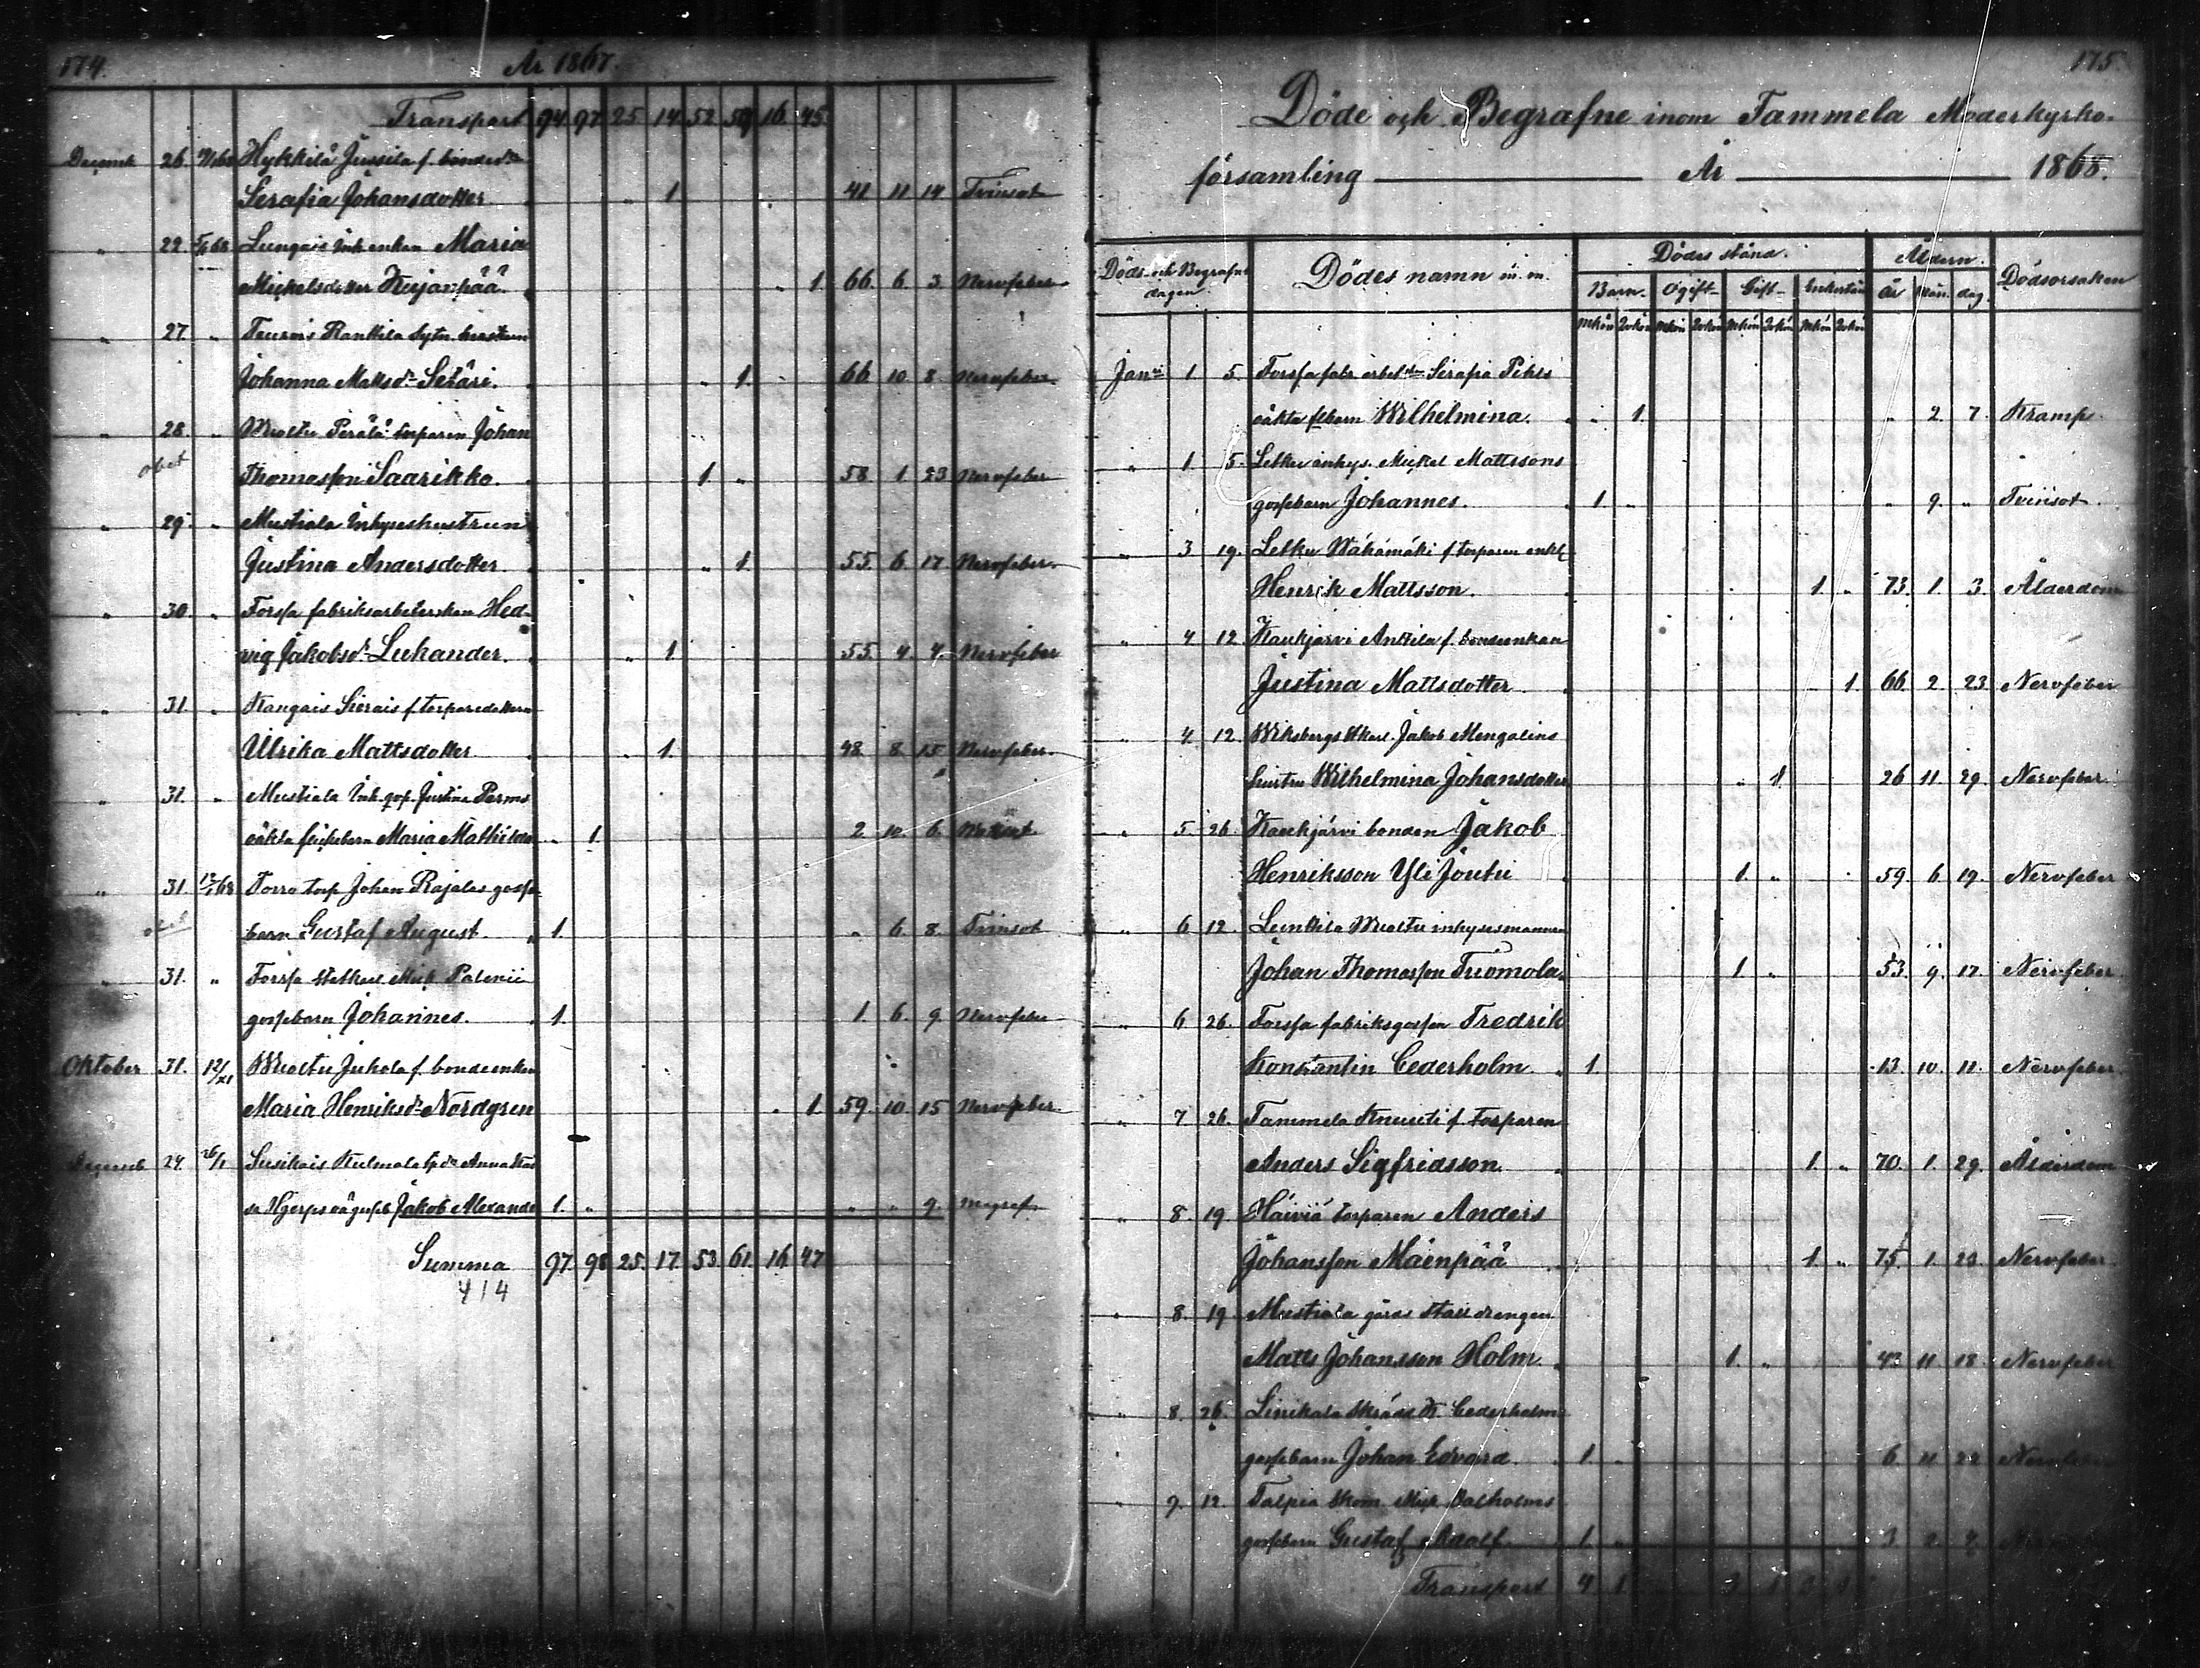 174.
År 1867.
Transport 94 97 25 14 52 59 16 45
Decemb 26. Hykkilä Jussila f. bonded:r
Serafia Johansdotter. 1 41 11 14 Tvinsot
" 22 5/1 68 Lungais Inh. enkan Maria
Mickelsdotter Kujanpää. 1. 66. 6. 3. Nervfeber
" 27. " Teurois Ranttila Sytn. hustrun
Johanna Mattsd:r Setäri. 1. 66. 10. 8. Nervfeber.
" 28. " Wuoltu Perälä torparen Johan
Thomasson Saarikko. 1 58. 1. 23 Nervfeber
" 29. " Mustiala Inhyseshustrun
Justina Andersdotter. 1. 55. 6. 17 Nervfeber.
" 30. " Forssa fabriksarbeterskan Hed-
vig Jakobsd:r Luhander. 1. 55. 4. 4. Nervfeber
" 31. " Kangais Sierais f. torparedottern
Ulrika Mattsdotter 1. 48. 8. 15. Nervfeber.
" 31. " Mustiala Inh. qvp. Justina Perms
oäkta flickebarn Maria Mathilda 1. 2. 10. 6.
" 31. 12/1 68 Torro torp. Johan Rajalas gosse-
barn Gustaf August. 1. " 6. 8. Tvinsot
" 31. " Forssa Mick. Palenii
gossebarn Johannes. 1. 1. 6. 9. Nervfeber
Oktober 31. 12/XI Wuoltu Jukola f. bondeenkan
Maria Henriksd:r Nordgren 1. 59. 10. 15 Nervfeber.
Decemb 24. 26/1 Susikais Kulmala Anna
oä gosseb Jakob Alexander 1. " " " 9.
Summa 97. 98. 25. 17. 53. 61. 16. 47.
414
175.
Döde och Begrafne inom Tammela Moderkyrko-
församling År 1868.
Döds- och Begrafne dagen. Dödes namn m. m. Dödes stånd. Åldern. Dödsorsaken
Barn. Ogift. Gift. Enkestån år mån. dag.
Mkön Qvkön Mkön Qvkön Mkön Qvkön Mkön Qvkön
Janu 1 5. Forssa fabr. arbet. Serafia Pihls
oäkta flbarn Wilhelmina. " 1. " 2. 7. Kramp.
" 1 5. Letku inhys. Mickel Mattssons
gossebarn Johannes. 1 " " 9. " Tvinsot.
" 3 19. Letku Wähämäki f. torparen enkl.
Henrik Mattsson. 1. " 73. 1. 3. Ålderdom
" 4 12 Kaukjärvi Anttila f. bondeenkan
Justina Mattsdotter. 1 66. 2. 23 Nervfeber
" 4. 12. Wiksbergs Jakob Mengalins
hustru Wilhelmina Johansdotter " 1. 26 11. 29. Nervfeber.
" 5. 26. Kaukjärvi bonden Jakob
Henriksson Yli Joutu 1. " 59. 6. 19. Nervfeber
" 6 12. Lunkila Wuoltu inhysesmannen
Johan Thomasson Tuomola. 1 " 53. 9. 17. Nervfeber
" 6 26. Forssa fabriksgossen Fredrik
Konstantin Cederholm. 1. 13. 10. 11. Nervfeber.
" 7 26. Tammela f. torparen
Anders Sigfridsson. 1. " 70. 1. 29. Ålderdom
" 8. 19. Häiviä torparen Anders
Johansson Mäenpää 1. " 75. 1. 23. Nervfeber.
" 8. 19. Mustiala gårds stalldrengen
Matts Johansson Holm. 1. " 43. 11. 18. Nervfeber
" 8. 26. Linikala Skrädd. K. Cederholms
gossebarn Johan Edvard. 1. 6. 11. 22. Nervfeber
" 9. 12. Talpia Skom. Mick. Dalholms
gossebarn Gustaf Adolf. 1. " 3. 2.
Transport 4. 1. 3. 1. 3. 1.